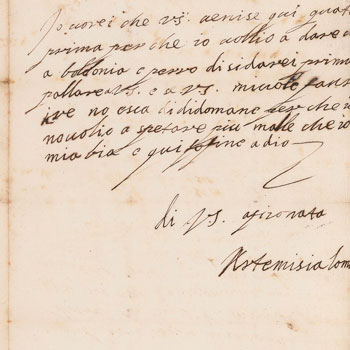 Io vorei che VS. venise qui quat
prima per che io vollio a dare a
a bollonia e perro di sidarei prima
parlare a VS. e a VS.
ive no esca di didomane per che io
no volio a spetare piu male che io
mia bia e qui fo fine a dio
di VS. afizonata
Artemisia lom